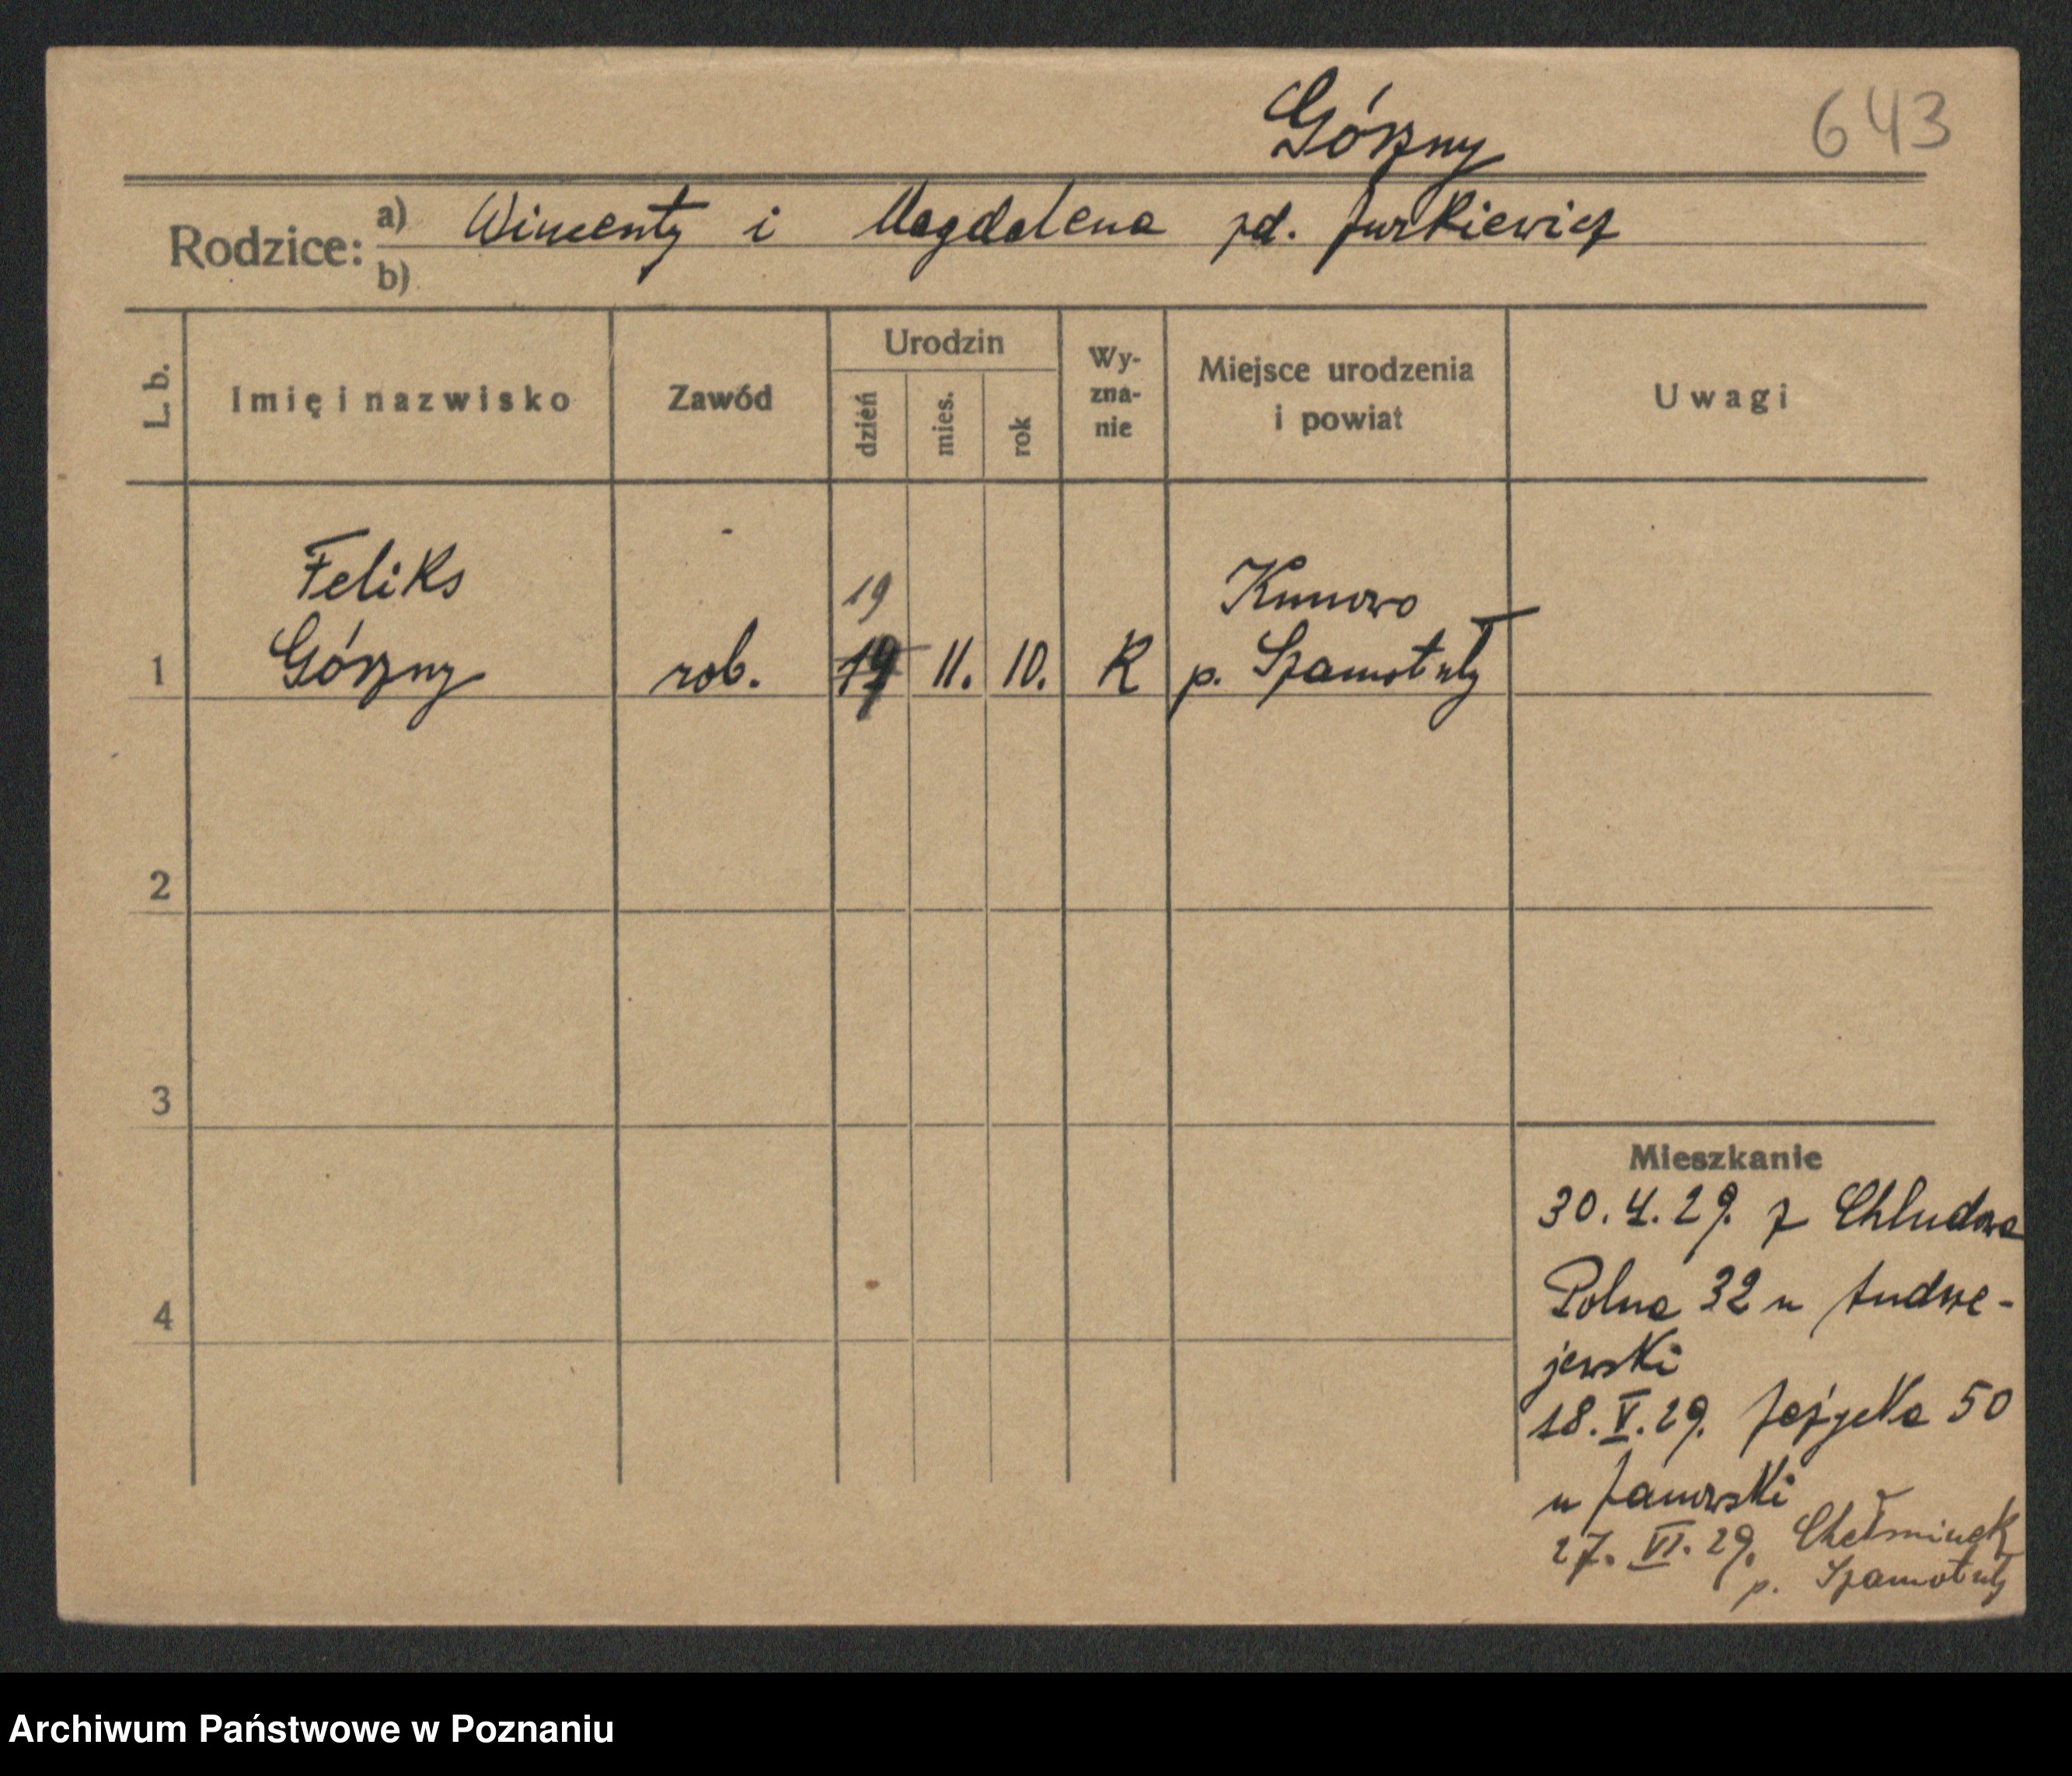 Górzny
643
Rodzice: a) Wincenty i Magdalena zd. Jurkiewicz
b)
L. b.
Imię i nazwisko
Zawód
Urodzin
dzień
mies.
rok
Wy-
zna-
nie
Miejsce urodzenia
i powiat
Uwagi
Feliks
19
Kunowo
1 Górzny rob. 11. 10. K p. Szamotuły
2
3
4
Mieszkanie
30.4.29. z Chludowa
Polna 32 u Andrze-
jewski
18.V.29. Jeżycka 50
u Janowski
27. VI. 29.
p. Szamotuły
Archiwum Państwowe w Poznaniu